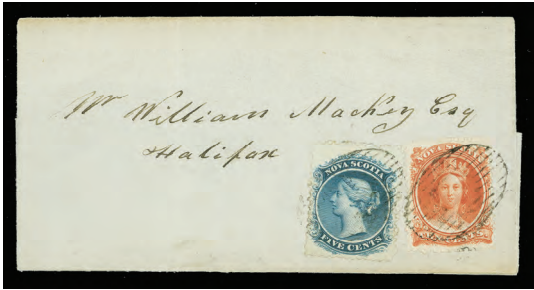 Mr William Mackey Esq
Halifax
NOVA SCOTIA
FIVE CENTS